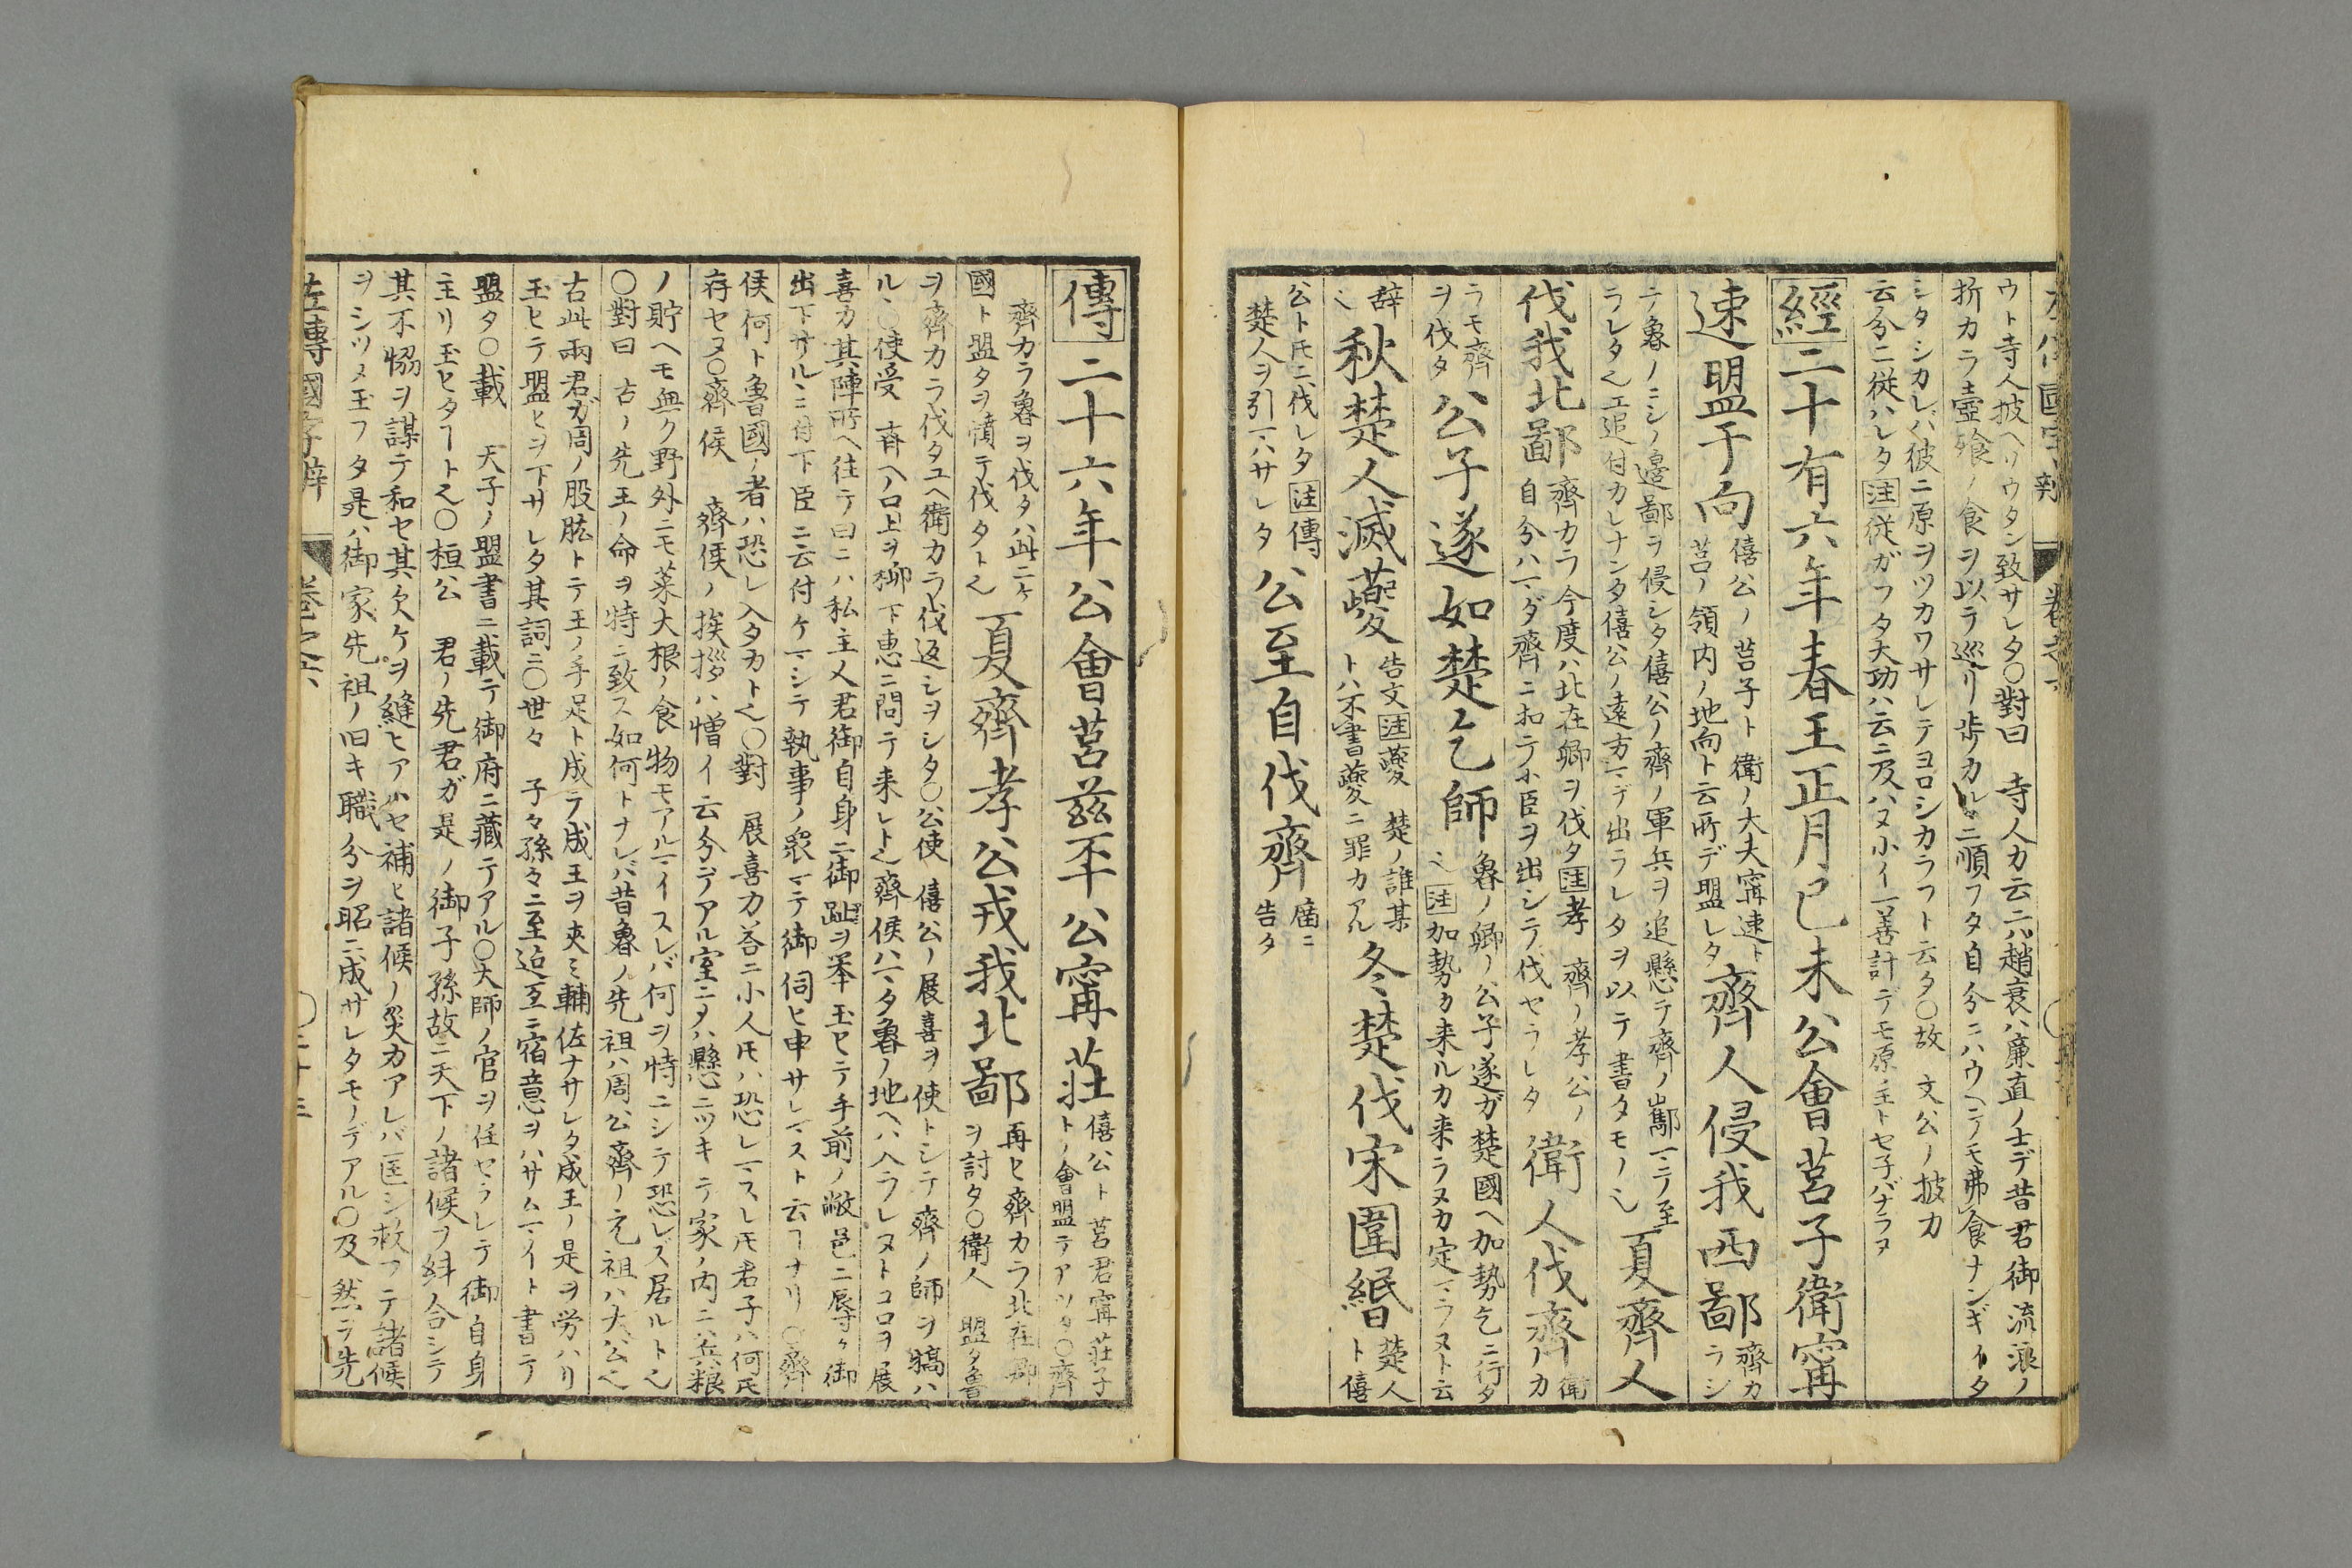 ウト寺人披ヘリウタン致サレタ○對曰　寺人カ云ニハ趙衰ハ廉直ノ士デ昔君御流浪ノ
折カラ壺飱ノ食ヲ以テ巡リ歩カルヽニ順フタ自分ニハウヘテモ弗食ナンギイタ
シタシカレバ彼ニ原ヲツカワサレテヨロシカラフト云タ○故　文公ノ披カ
云分ニ従ハレタ注従ガフタ大功ハ云ニ及ハヌ小イ一善計デモ原ノ主トセ子バナラヌ
經二十有六年春王正月己未公會莒子衛甯
速盟于向
僖公ノ莒子ト衛ノ大夫甯速ト
莒ノ領内ノ地向ト云所デ盟レタ
齊人侵我西鄙
齊カ
ラシ
テ魯ノニシノ邊鄙ヲ侵シタ僖公ノ齊ノ軍兵ヲ追懸テ齊ノ酅マテ至
ラレタ〆追付カレナンタ僖公ノ遠方マデ出ラレタヲ以テ書タモノ〆
夏齊人
伐我北鄙
齊カラ今度ハ北在郷ヲ伐タ注孝　齊ノ孝公ノ
自分ハマダ齊ニ扣テ小臣ヲ出シテ伐セラレタ
衛人伐齊
衛
カ
ラモ齊
ヲ伐タ
公子遂如楚乞師
魯ノ卿ノ公子遂ガ楚國ヘ加勢乞ニ行タ
〆注加勢カ来ルカ来ラヌカ定マラヌト云
辞
〆
秋楚人滅夔
告文注夔　楚ノ誰某
トハ不書夔ニ罪カアル
冬楚伐宋圍緡
楚人
ト僖
公ト氏ニ伐レタ注傳
楚人ヲ引マハサレタ
公至自伐齊
庿ニ
告タ
傳二十六年公會莒茲丕公甯莊
僖公ト莒君甯莊子
トノ會盟テアツタ○齊
齊カラ魯ヲ伐タハ此ニケ
國ト盟タヲ憤テ伐タト〆
夏齊孝公戎我北鄙
再ヒ齊カラ北在郷
ヲ討タ○衛人　盟タ魯
ヲ齊カラ伐タユヘ衛カラ伐返シヲシタ○公使　僖公ノ展喜ヲ使トシテ齊ノ師ヲ犒ハ
ル○使受　齊ヘノ口上ヲ柳下惠ニ問テ来レト〆齊侯ハマタ魯ノ地ヘハ入ラレヌトコロヲ展
喜カ其陣所ヘ往テ曰ニハ私主人君御自身ニ御趾ヲ举玉ヒテ手前ノ敝邑ニ辱ケ御
出下サルヽニ付下臣ニ云付ケマシテ執事ノ衆マテ御伺ヒ申サレマスト云フナリ○齊
侯何ト魯國ノ者ハ恐レ入タカト〆○對　展喜カ答ニ小人氏ハ恐レマスレ氏君子ハ何氏
存セヌ○齊候　齊侯ノ挨拶ハ憎イ云分デアル室ニタハ懸ニツキテ家ノ内ニハ兵粮
ノ貯ヘモ無ク野外ニモ菜大根ノ食物モアルマイスレバ何ヲ恃ニシテ恐レズ居ルト〆
○對曰　古ノ先王ノ命ヲ恃ニ致ス如何トナレバ昔魯ノ先祖ハ周公齊ノ元祖ハ大公〆
古此兩君ガ周ノ股肱トテ王ノ手足ト成テ成王ヲ夾ミ輔佐ナサレタ成王ノ是ヲ労ハリ
玉ヒテ盟ヒヲ下サレタ其詞ニ○世々　子々孫々ニ至迠互ニ宿意ヲハサムマイト書テ
盟タ○載　天子ノ盟書ニ載テ御府ニ藏テアル○大師ノ官ヲ任セラレテ御自身
主リ玉ヒタート〆○桓公　君ノ先君ガ是ノ御子孫故ニ天下ノ諸候ヲ糾合シテ
其不恊ヲ謀テ和セ其欠ケヲ縫ヒアハセ補ヒ諸候ノ災カアレバ匡シ救フテ諸候
ヲシツメ玉フタ是ハ御家先祖ノ旧キ職分ヲ昭ニ成サレタモノデアル○及　然ラ先
左傳國字辨　卷之六　○二十三